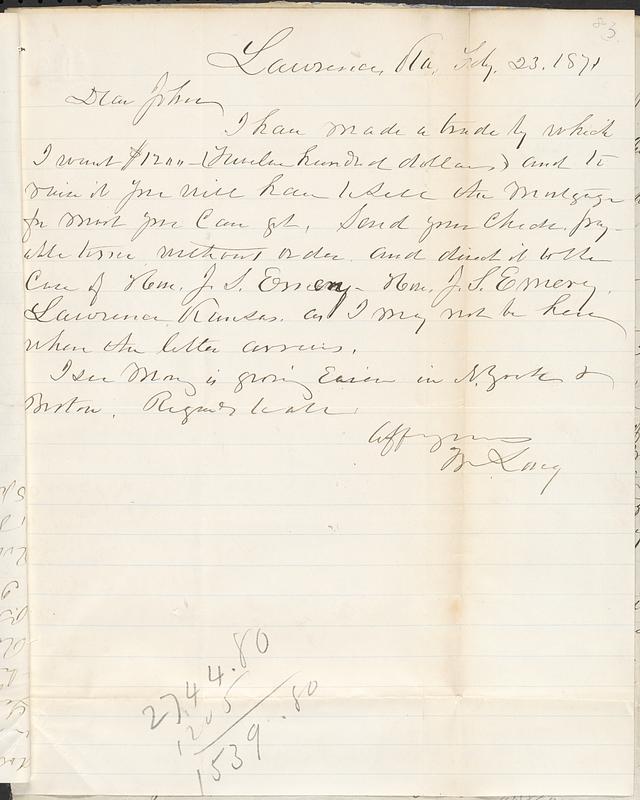 83
Lawrence, Ka, Feby. 23. 1871
Dear John
I have made a trade by which
I want $1200 - (Twelve hundred dollars,) and to
raise it you will have to sell the Mortgage
for most you can get, Send your Check, pay-
able to me without order and direct it to the
Care of Hon. J. S. Emery - Hon. J. S. Emery.
Lawrence Kansas. as I may not be here
when the letter arrives.
I see Money is growing Easier in N. York &
Boston. Regards to all
Aff yours
2744.80
1205
1539.80